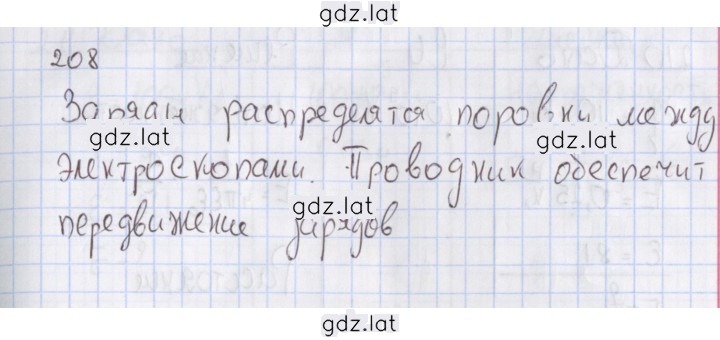 gdz.lat
208
Заряды распределятся поровну между
gdz.lat
gdz.lat
электроскопами. Проводник обеспечит
gdz.lat
передвижение зарядов
gdz.lat